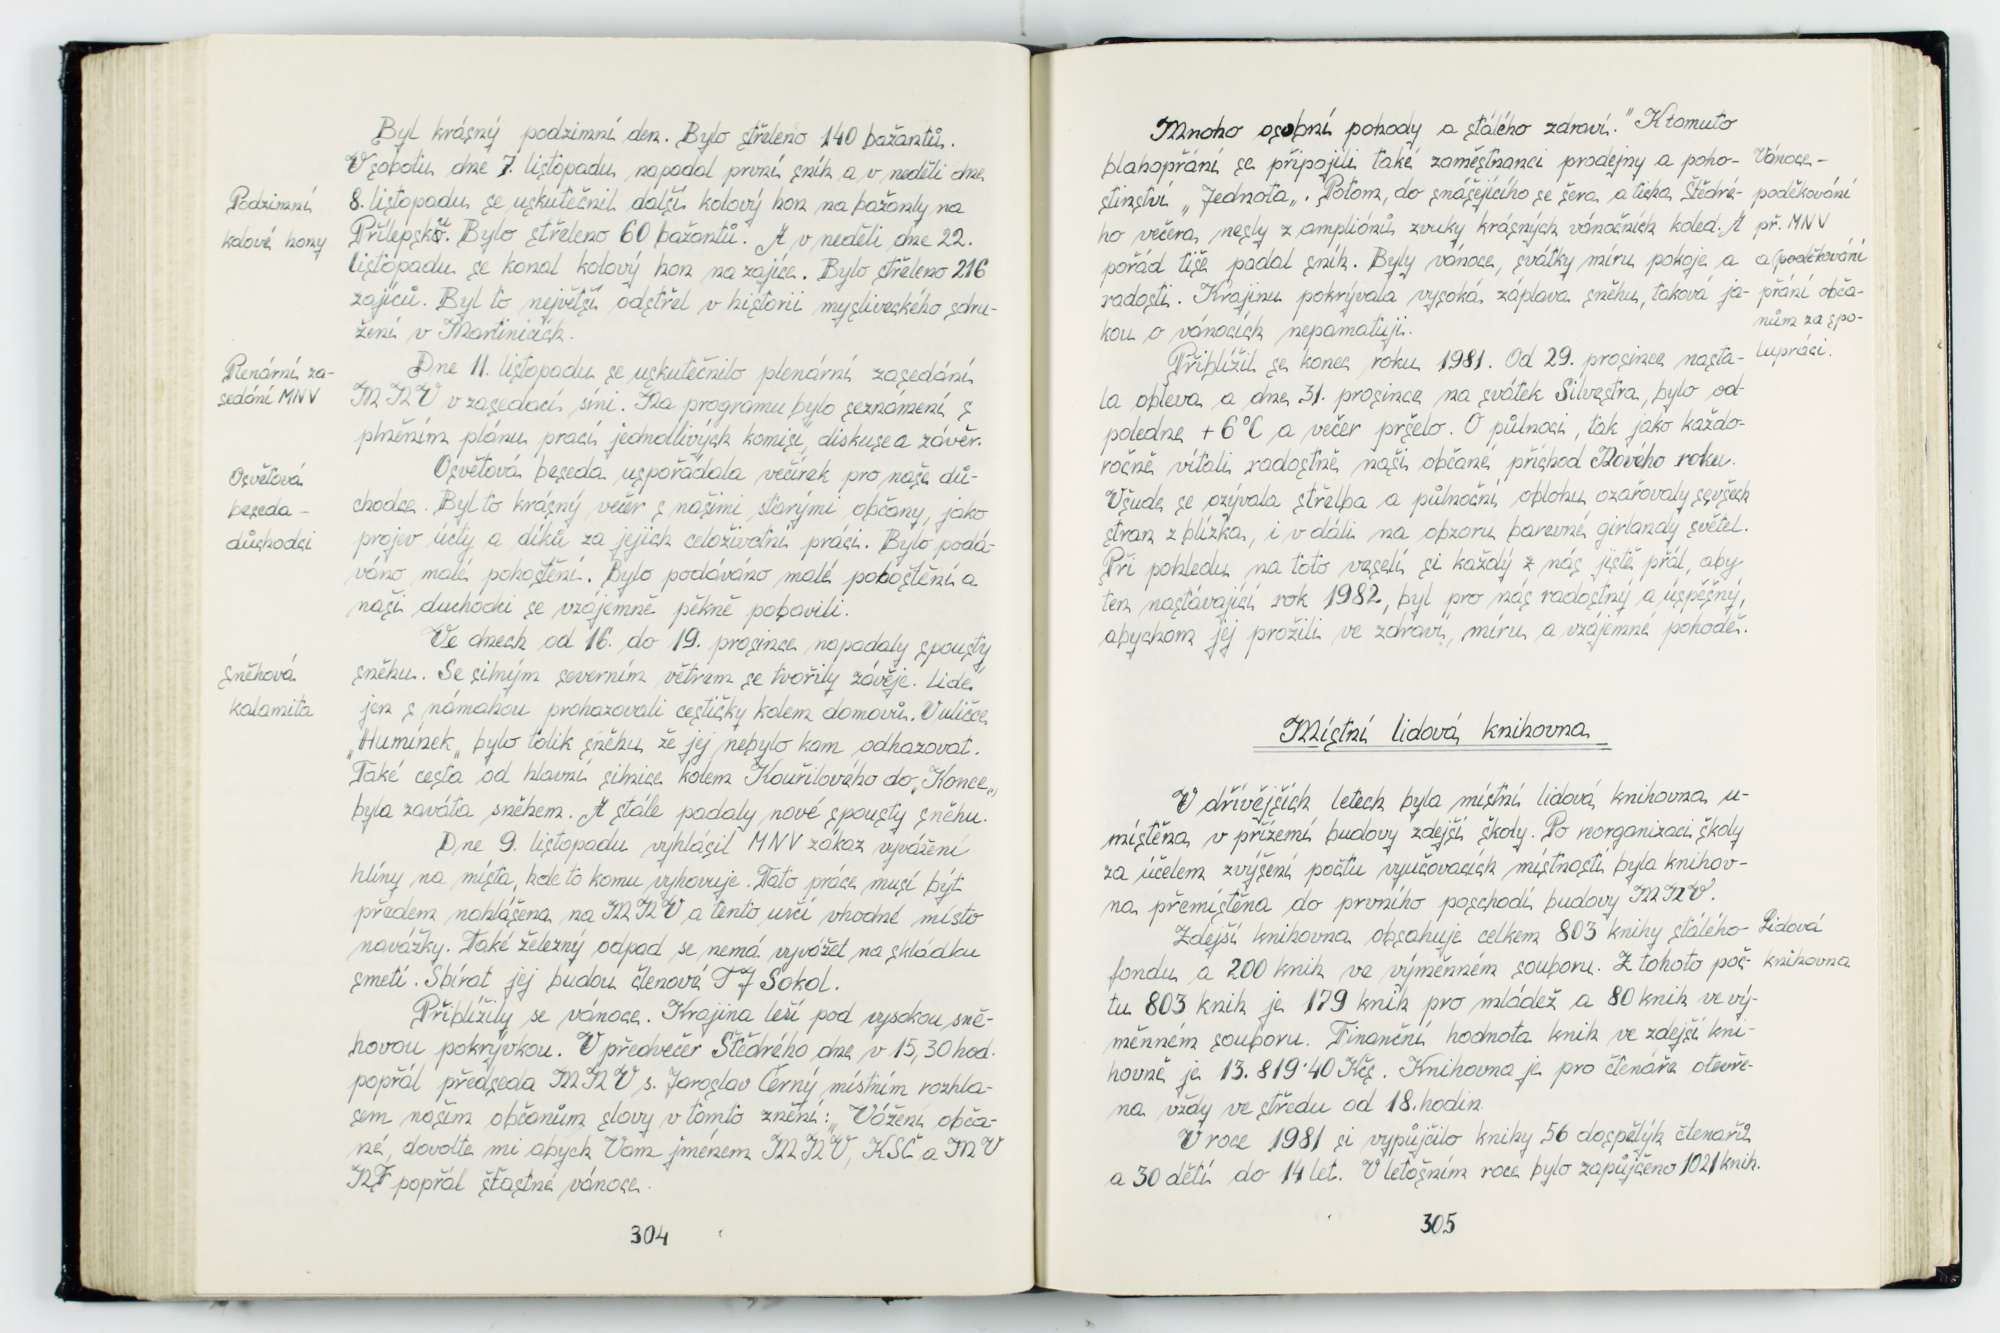 Byl krásný podzimní den. Bylo střeleno 140 bažantů.
V sobotu dne 7. listopadu napadal první sníh a v neděli dne
Podzimní
8. listopadu se uskutečnil další kolový hon na bažanty na
kolové hony
Přílepsku. Bylo střeleno 60 bažantů. A v neděli dne 22.
listopadu se konal kolový hon na zajíce. Bylo střeleno 216
zajíců. Byl to největší odstřel v historii mysliveckého sdru-
žení v Martinicích.
Plenární za-
Dne 11. listopadu se uskutečnilo plenární zasedání
sedání MNV
MNV v zasedací síni. Na programu bylo seznámení s
plněním plánu prací jednotlivých komisí, diskuse a závěr.
Osvětová
Osvětová beseda uspořádala večírek pro naše dů-
beseda -
chodce. Byl to krásný večer s našimi starými občany, jako
důchodci
projev úcty a díků za jejich celoživotní práci. Bylo podá-
váno malé pohoštění. Bylo podáváno malé pohoštění a
naši duchodci se vzájemně pěkně pobavili.
Ve dnech od 16. do 19. prosince napadaly spousty
Sněhová
sněhu. Se silným severním větrem se tvořily závěje. Lidé
kalamita
jen s námahou prohazovali cestičky kolem domovů. V uličce
„Humínek„ bylo tolik sněhu, že jej nebylo kam odhazovat.
Také cesta od hlavní silnice kolem Kouřilového do „Konce„
byla zaváta sněhem. A stále padaly nové spousty sněhu.
Dne 9. listopadu vyhlásil MNV zákaz vyvážení
hlíny na místa, kde to komu vyhovuje. Tato práce musí být
předem nahlášena na MNV a tento určí vhodné místo
navážky. Také železný odpad se nemá vyvážet na skládku
smetí. Sbírat jej budou členové TJ Sokol.
Přiblížily se vánoce. Krajina leží pod vysokou sně-
hovou pokrývkou. V předvečer Štědrého dne v 15,30 hod.
popřál předseda MNV s. Jaroslav Černý místním rozhla-
sem našim občanům slovy v tomto znění: „Vážení obča-
né, dovolte mi abych Vám jménem MNV, KSČ a MV
NF popřál šťastné vánoce.
304
Mnoho osobní pohody a stálého zdraví." K tomuto
blahopřání se připojili také zaměstnanci prodejny a poho-
Vánoce -
stinství „Jednota„. Potom, do snášejícího se šera a ticha Štědré-
poděkování
ho večera nesly z ampliónů zvuky krásných vánočních koled. A
př. MNV
pořád tiše padal sníh. Byly vánoce, svátky míru pokoje a
a poděkování
radosti. Krajinu pokrývala vysoká záplava sněhu, taková ja-
přání obča-
kou o vánocích nepamatuji.
nům za spo-
lupráci.
Přiblížil se konec roku 1981. Od 29. prosince nasta-
la obleva a dne 31. prosince na svátek Silvestra, bylo od-
poledne +6°C a večer pršelo. O půlnoci, tak jako každo-
ročně vítali radostně naši občané příchod Nového roku.
Všude se ozývala střelba a půlnoční oblohu ozařovaly se všech
stran z blízka, i v dáli na obzoru barevné girlandy světel.
Při pohledu na toto veselí si každý z nás jistě přál, aby
ten nastávající rok 1982, byl pro nás radostný a úspěšný,
abychom jej prožili ve zdraví, míru a vzájemné pohodě.
Místní lidová knihovna
V dřívějších letech byla místní lidová knihovna u-
místěna v přízemí budovy zdejší školy. Po reorganizaci školy
za účelem zvýšení počtu vyučovacích místností byla knihov-
na přemístěna do prvního poschodí budovy MNV.
Zdejší knihovna obsahuje celkem 803 knihy stálého
Lidová
fondu a 200 knih ve výměnném souboru. Z tohoto poč-
knihovna
tu 803 knih je 179 knih pro mládež a 80 knih ve vý-
měnném souboru. Finanční hodnota knih ve zdejší kni-
hovně je 13.819·40 Kčs. Knihovna je pro čtenáře otevře-
na vždy ve středu od 18. hodin.
V roce 1981 si vypůjčilo knihy 56 dospělých čtenářů
a 30 dětí do 14 let. V letošním roce bylo zapůjčeno 1021 knih.
305